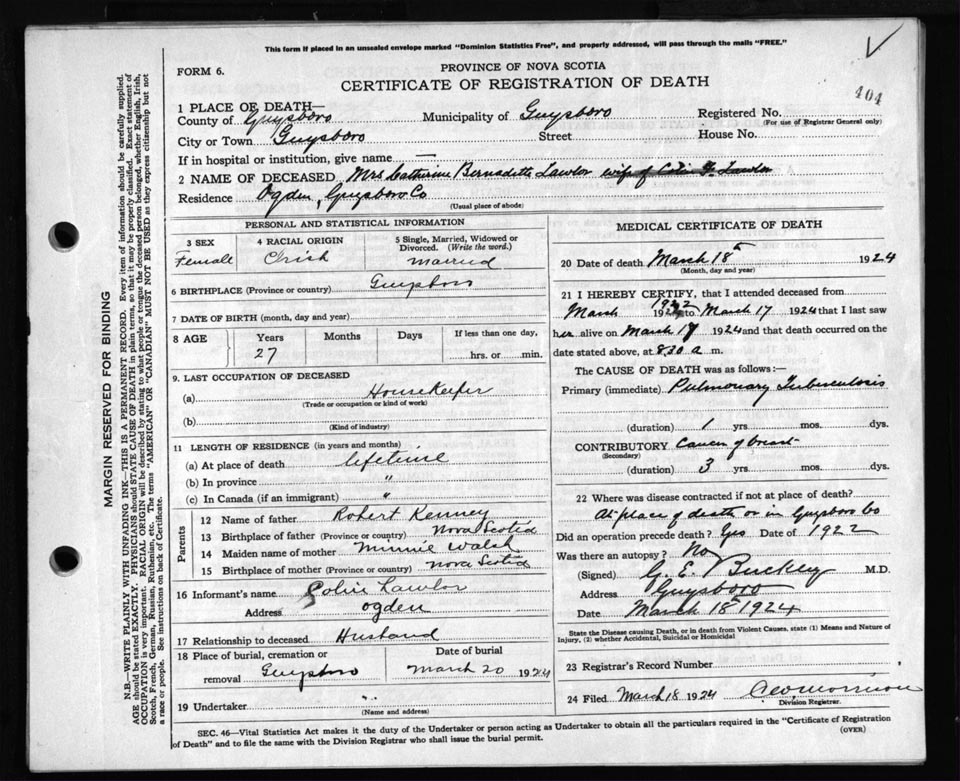 This form if placed in an unsealed envelope marked "Dominion Statistics Free", and properly addressed, will pass through the mails "FREE."
FORM 6.
PROVINCE OF NOVA SCOTIA
CERTIFICATE OF REGISTRATION OF DEATH
404
1 PLACE OF DEATH—
County of Guysboro Municipality of Guysboro Registered No.
(For use of Registrar General only)
City or Town Guysboro Street House No.
If in hospital or institution, give name —
2 NAME OF DECEASED Mrs Catherine Bernadette Lawlor wife of Colin F. Lawlor
Residence Ogden, Guysboro Co
(Usual place of abode)
PERSONAL AND STATISTICAL INFORMATION
3 SEX
Female
4 RACIAL ORIGIN
Irish
5 Single, Married, Widowed or Divorced. (Write the word.)
married
6 BIRTHPLACE (Province or country) Guysboro
7 DATE OF BIRTH (month, day and year)
8 AGE Years Months Days If less than one day,
27 hrs. or min.
9. LAST OCCUPATION OF DECEASED
(a) House Keeper
(Trade or occupation or kind of work)
(b)
(Kind of industry)
11 LENGTH OF RESIDENCE (in years and months)
(a) At place of death lifetime
(b) In province "
(c) In Canada (if an immigrant) "
Parents
12 Name of father Robert Kenney
13 Birthplace of father (Province or country) Nova Scotia
14 Maiden name of mother Minnie Walsh
15 Birthplace of mother (Province or country) Nova Scotia
16 Informant's name Colin Lawlor
Address Ogden
17 Relationship to deceased Husband
18 Place of burial, cremation or removal Guysboro
Date of burial
March 20 1924
19 Undertaker
(Name and address)
MEDICAL CERTIFICATE OF DEATH
20 Date of death March 18th 1924
(Month, day and year)
21 I HEREBY CERTIFY, that I attended deceased from
March 1922 to March 17 1924 that I last saw
her alive on March 17 1924 and that death occurred on
date stated above, at 8.30 a m.
The CAUSE OF DEATH was as follows:—
Primary (immediate) Pulmonary Tuberculosis
(duration) 1 yrs. mos. dys.
CONTRIBUTORY Cancer of breast
(Secondary)
(duration) 3 yrs mos. dys.
22 Where was disease contracted if not at place of death?
At place of death or in Guysboro Co
Did an operation precede death? Yes Date of 1922
Was there an autopsy? No
(Signed) G. E. Buckley M.D.
Address Guysboro
Date March 18th 1924
State the Disease causing Death, or in death from Violent Causes, state (1) Means and Nature of Injury, (2) whether Accidental, Suicidal or Homicidal
23 Registrar's Record Number
24 Filed March 18 1924 Geo Morrison
Division Registrar.
SEC. 46—Vital Statistics Act makes it the duty of the Undertaker or person acting as Undertaker to obtain all the particulars required in the "Certificate of Registration
of Death" and to file the same with the Division Registrar who shall issue the burial permit.
(OVER)
MARGIN RESERVED FOR BINDING
N.B.—WRITE PLAINLY WITH UNFADING INK—THIS IS A PERMANENT RECORD. Every item of information should be carefully supplied.
AGE should be stated EXACTLY. PHYSICIANS should STATE CAUSE OF DEATH in plain terms, so that it may be properly classified. Exact statement of
OCCUPATION is very important. RACIAL ORIGIN will be described by stating to what people or tongue the deceased person belonged, whether English, Irish,
Scotch, French, German, Russian, Ruthenian, etc. The terms "AMERICAN" OR "CANADIAN" MUST NOT BE USED as they express citizenship but not
a race or people. See instructions on back of Certificate.